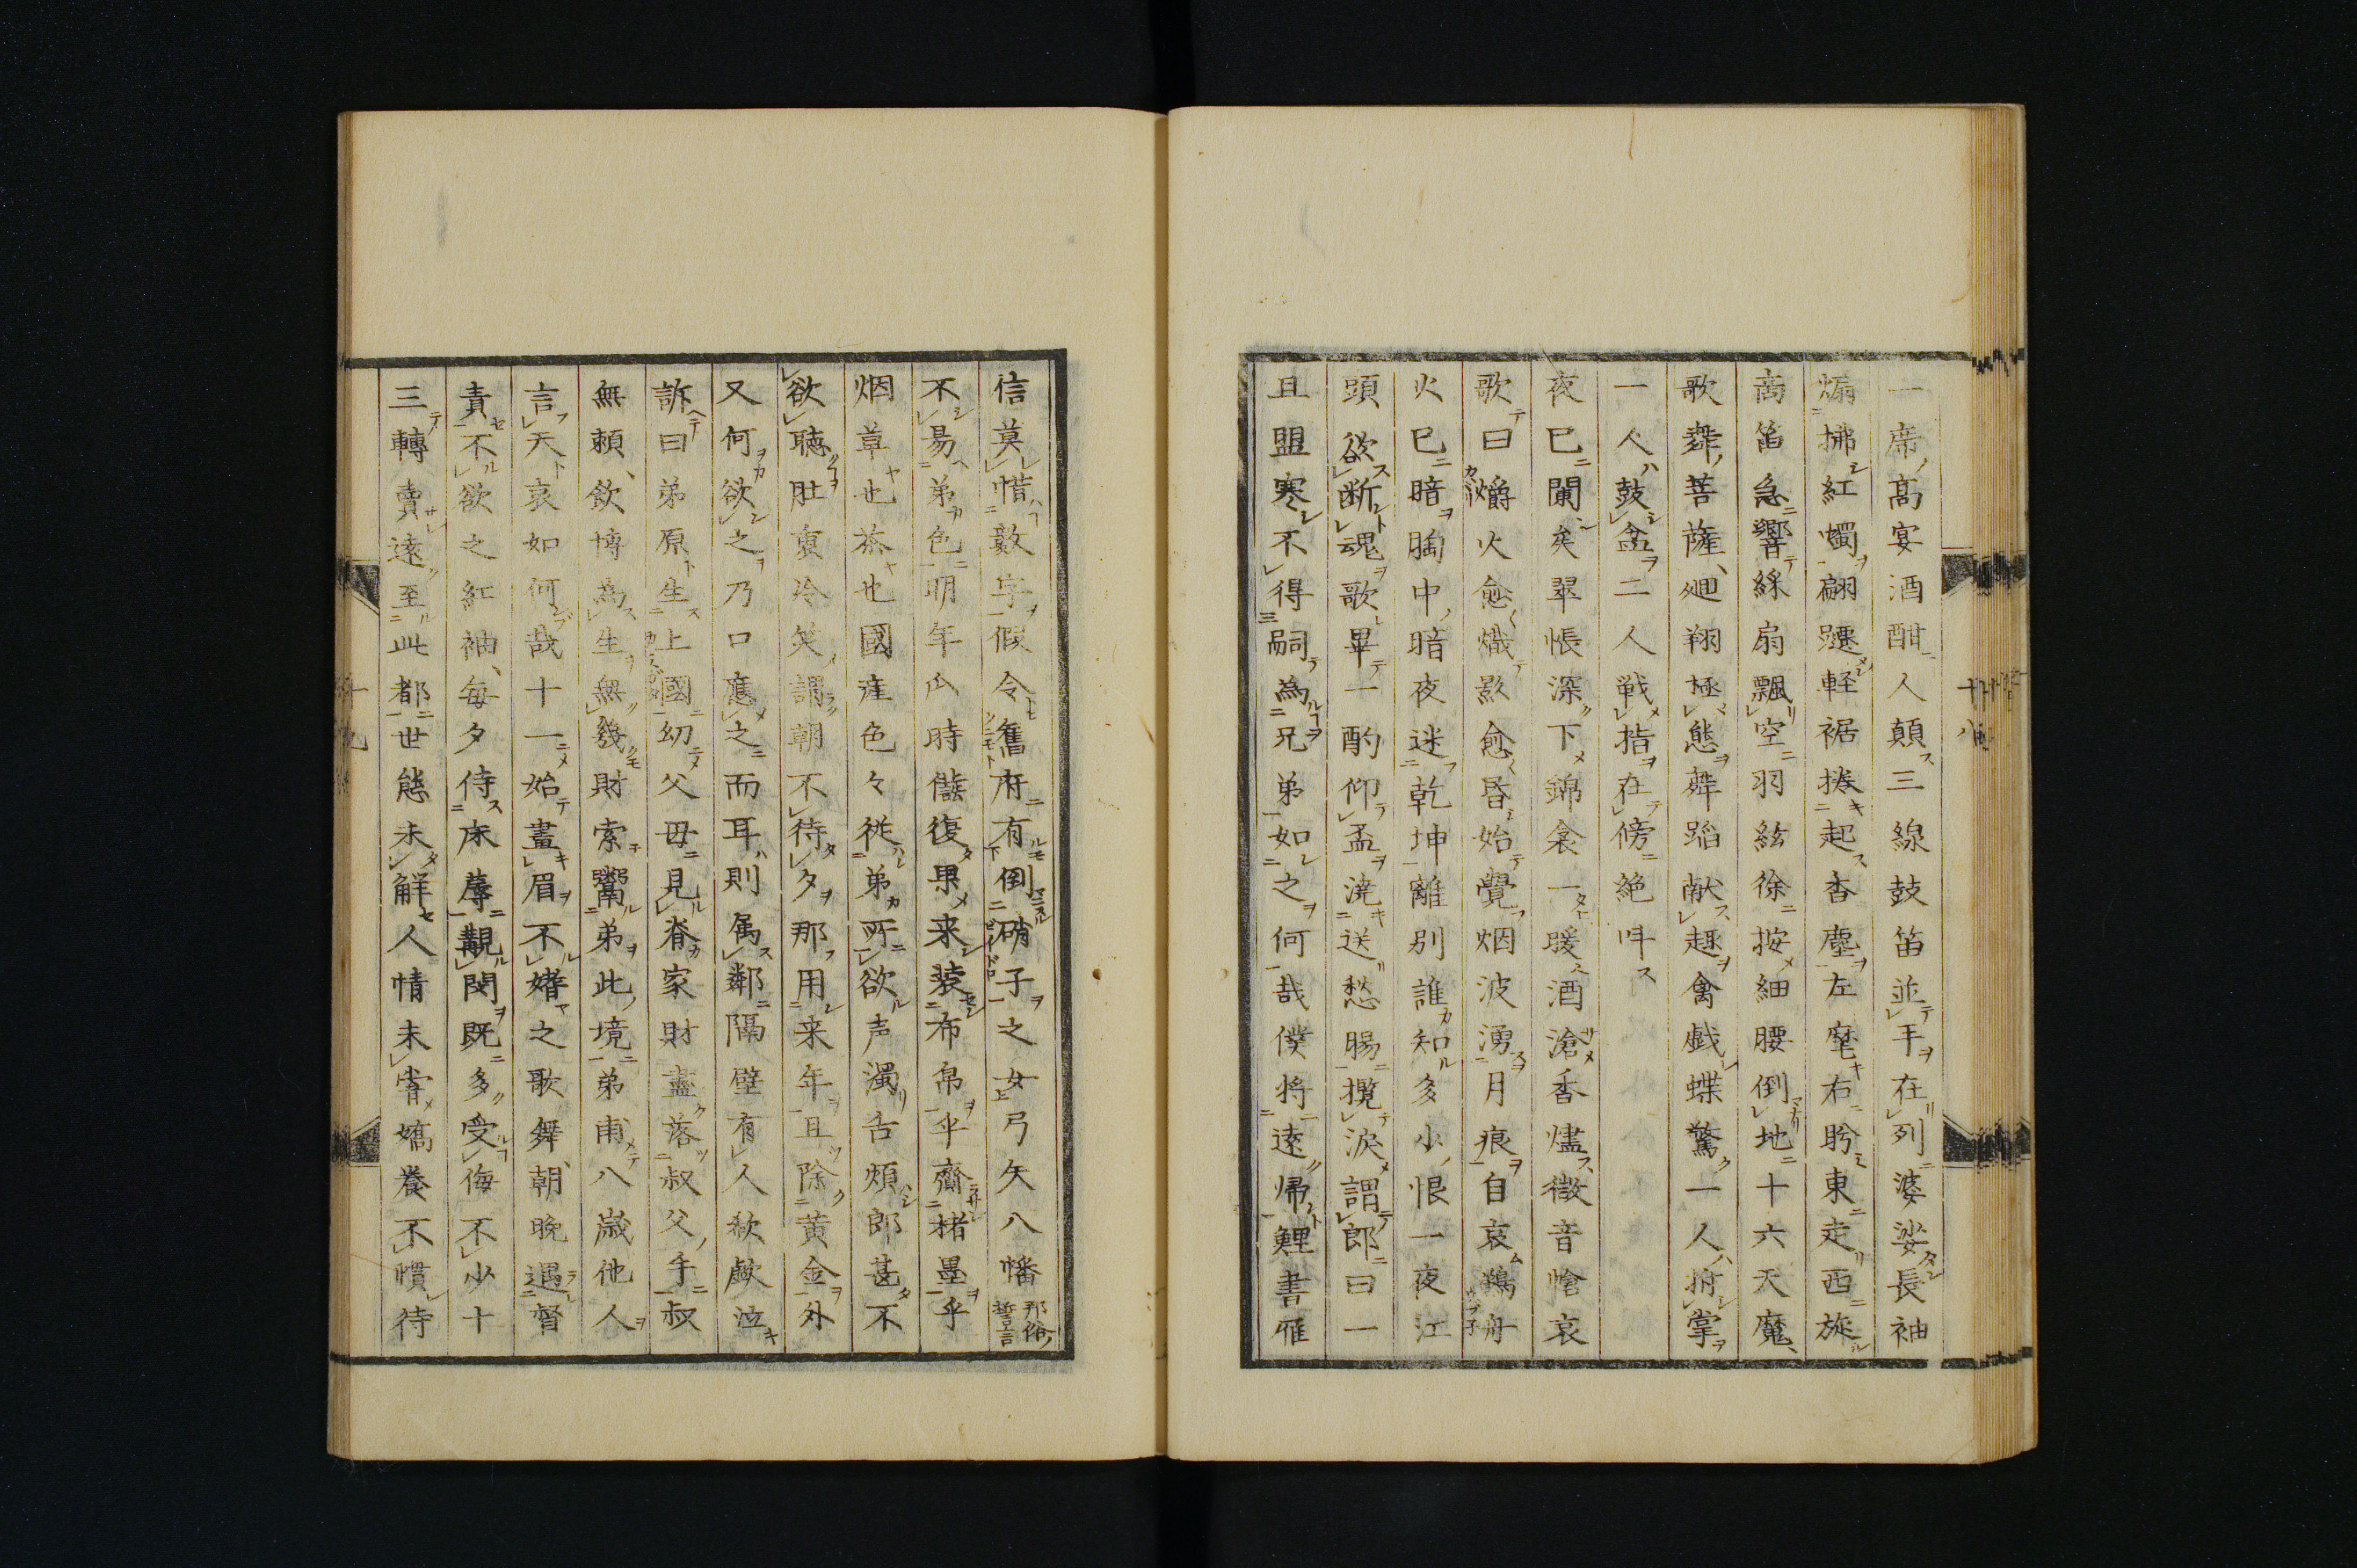 一席高宴酒酣人顛三線鼓笛並手在列婆娑長袖
煽拂紅燭翩躚軽裾捲起杏塵左麾右盻東走西旋
高笛急響綵扇飄空羽絃徐按細腰倒地十六天魔
歌舞菩薩廻翔極態舞蹈献趣禽戯蝶驚一人拊掌
一人鼓盆二人戦指在傍絶呌
夜已闌矣翠帳深下錦衾一暖酒滄香燼微音愴哀
歌曰爝火愈熾㷇愈昏始覺烟波湧月痕自哀鷁舟
火已暗胸中暗夜迷乾坤離別誰知多少恨一夜江
頭欲断魂歌畢一酌仰盃澆送愁腸攬涙謂郎曰一
且盟寒不得嗣為兄弟如之何哉僕将遠帰鯉書雁
十八
信莫惜数字假令舊府有倒硝子之女弓矢八幡那俗誓言
不易弟色明年此時儎復果来装布帛乎齎楮墨乎
烟草也茶也國産色々従弟所欲声濁舌頻郎甚不
欲聴肚裏冷笑謂朝不待夕那用来年且除黄金外
又何欲之乃口應之而耳則属鄰隔壁有人欷歔泣
訴曰弟原生上國幼父母見脊家財盡落叔父手叔
無頼飲博為生無幾財索鬻弟此境弟甫八歳他人
言天哀如何哉十一始畫眉不媎之歌舞朝晩遇督
責不欲之紅袖毎夕侍床蓐覯閔既多受侮不少十
三轉賣遠至此都世態未解人情未甞嬌養不慣待
十九